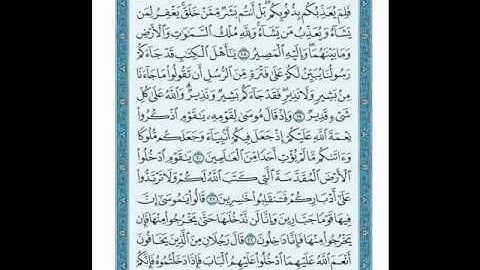 فَلِمَ يُعَذِّبُكُم بِذُنُوبِكُم ۖ بَلْ أَنتُم بَشَرٌ مِّمَّنْ خَلَقَ ۚ يَغْفِرُ لِمَن
يَشَاءُ وَيُعَذِّبُ مَن يَشَاءُ ۚ وَلِلَّهِ مُلْكُ السَّمَاوَاتِ وَالْأَرْضِ
وَمَا بَيْنَهُمَا ۖ وَإِلَيْهِ الْمَصِيرُ ١٨ يَا أَهْلَ الْكِتَابِ قَدْ جَاءَكُمْ
رَسُولُنَا يُبَيِّنُ لَكُمْ عَلَىٰ فَتْرَةٍ مِّنَ الرُّسُلِ أَن تَقُولُوا مَا جَاءَنَا
مِن بَشِيرٍ وَلَا نَذِيرٍ ۖ فَقَدْ جَاءَكُم بَشِيرٌ وَنَذِيرٌ ۗ وَاللَّهُ عَلَىٰ كُلِّ
شَيْءٍ قَدِيرٌ ١٩ وَإِذْ قَالَ مُوسَىٰ لِقَوْمِهِ يَا قَوْمِ اذْكُرُوا
نِعْمَةَ اللَّهِ عَلَيْكُمْ إِذْ جَعَلَ فِيكُمْ أَنبِيَاءَ وَجَعَلَكُم مُّلُوكًا
وَآتَاكُم مَّا لَمْ يُؤْتِ أَحَدًا مِّنَ الْعَالَمِينَ ٢٠ يَا قَوْمِ ادْخُلُوا
الْأَرْضَ الْمُقَدَّسَةَ الَّتِي كَتَبَ اللَّهُ لَكُمْ وَلَا تَرْتَدُّوا
عَلَىٰ أَدْبَارِكُمْ فَتَنقَلِبُوا خَاسِرِينَ ٢١ قَالُوا يَا مُوسَىٰ إِنَّ
فِيهَا قَوْمًا جَبَّارِينَ وَإِنَّا لَن نَّدْخُلَهَا حَتَّىٰ يَخْرُجُوا مِنْهَا فَإِن
يَخْرُجُوا مِنْهَا فَإِنَّا دَاخِلُونَ ٢٢ قَالَ رَجُلَانِ مِنَ الَّذِينَ يَخَافُونَ
أَنْعَمَ اللَّهُ عَلَيْهِمَا ادْخُلُوا عَلَيْهِمُ الْبَابَ فَإِذَا دَخَلْتُمُوهُ فَإِنَّكُمْ